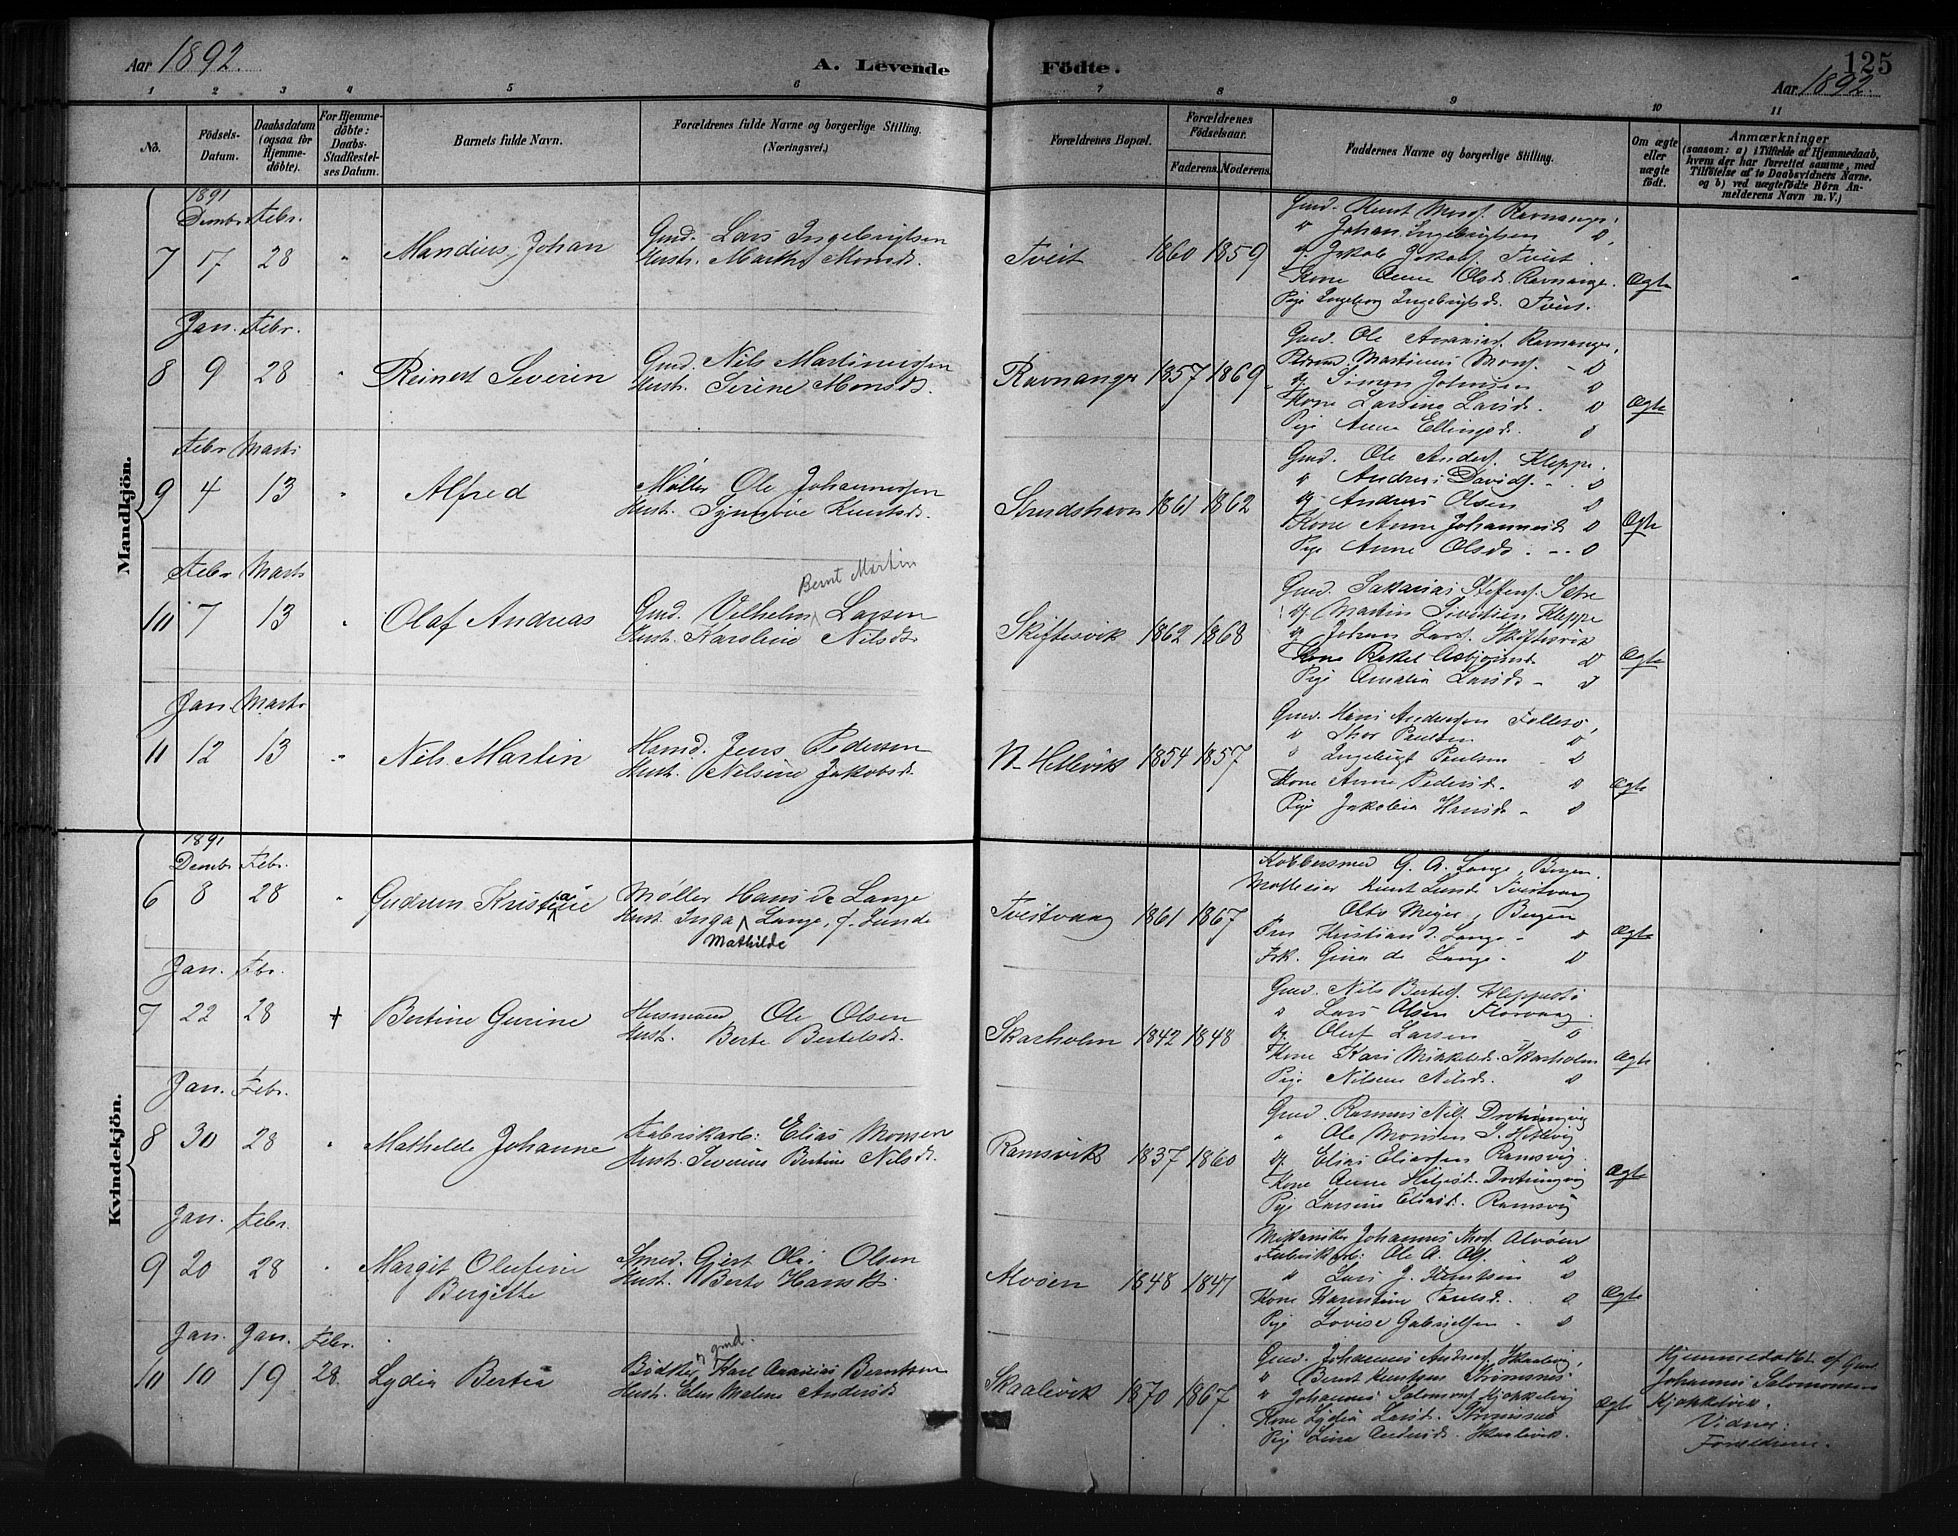 Aar 1892. A. Levende Födte. 125
Aar 1892.
1 2 3 4 5 6 7 8 9 10 11
No. Födsels-Datum. Daabsdatum (ogsaa for Hjemmedöbte). For Hjemmedöbte: Daabs-Stadfæstelses Datum. Barnets fulde Navn. Forældrenes fulde Navne og borgerlige Stilling. (Næringsvei.) Forældrenes Bopæl. Forældrenes Födselsaar. Faderens. Moderens. Faddernes Navne og borgerlige Stilling. Om ægte eller uægte födt. Anmærkninger (saasom: a) i Tilfælde af Hjemmedaab, hvem der har forrettet samme, med Tilföielse af to Daabsvidners Navne. og b) ved uægtefödte Börn Anmelderens Navn m. V.)
Mandkjön.
1891
Decmbr Febr.
7 17 28 " Mandius Johan
Gmd. Lars Ingebrigtsen
Hustr. Martha Monsd.
Tveit 1860 1859
Gmd. Knut Monss. Ravnanger
" Johan Ingebrigtsen "
og Jakob Jakobs. Tveit
Kone Anne Olsd. Ravnange.
Pige Ingeborg Ingebrigtsd. Tveit.
Ægte
Jan. Febr.
8 9 28 " Reinert Severin
Gmd. Nils Martinussen
Hust. Serine Monsd.
Ravnanger 1857 1869
Gmd. Ole Ananias. Ravnanger,
Martinus Monss. - D
og Simon Johnsen D
Kone Larsine Larsd. D
Pige Anna Ellingsd. D
Ægte
Febr Marts
9 4 13 " Alfred
Møller Ole Johannesen
Hust. Synnøve Knutsd.
Strudshavn 1861 1862
Gmd. Ole Anders. Kleppe.
" Andreas Davids. - D
og Andreas Olsen D
Kone Anne Johannesd. D
Pige Anne Olsd. - D
Ægte
Febr Marts
10 7 13 " Olaf Andreas
Bernt Martin
Gmd. Vilhelm Larsen
Hust. Karoline Nilsd.
Skiftesvik 1862 1868
Gmd. Sakarias Steffens. Sætre
og Martin Sivertsen Kleppe
og Johan Lars. Skiftesvik
Kone Rakel Asbjørnsd. D
Pige Amalia Larsd. - D
Ægte
Jan. Marts
11 12 13 " Nils Martin
Hamd. Jens Pedersen
Hust. Nelsine Jakobsd.
N-Hetlevik 1854 1857
Gmd. Hans Andersen Follesø,
" Thor Paulsen D
" Ingebrigt Paulsen - D
Kone Anne Pedersd. D
Pige Jakobia Hansd. - D
Ægte
Kvindekjön.
1891
Decmbr Febr.
6 8 28 " Gudrun Kristine
a
Møller Hans de Lange
Hust. Inga Lange, f. Lunde
Mathilde
Tveitvaag 1861 1867
Kobbersmed G. A. Lange, Bergen.
Knut Lunde Tveitvaag
Otto Meyer, Bergen
Kristian d. Lange - D
Frk. Gina de Lange - D
Ægte
Jan. Febr.
7 22 28 † Bertine Gurine
Husmand Ole Olsen
Hust. Berte Bertelsd.
Skarholm 1842 1848
Gmd. Nils Bertels. Kleppestø
" Lars Olsen Florvaag.
og Oluf Larsen D
Kone Kari Mikkelsd. Skarholm
Pige Nilsine Nilsd. D
Ægte
Jan. Febr.
8 30 28 " Mathilde Johanne
Fabrikarb: Elias Monsen
Hust. Severine Bertine Nilsd.
Ramsvik 1837 1860
Gmd. Rasmus Nils. Drotningvig
" Ole Monsen I. Hetlevig
og Elias Eliassen Ramsvig.
Kone Anne Drotningvig
Pige Larsine Eliasd. Ramsvig
Ægte
Jan. Febr.
9 20 28 " Margit Olufine
Birgitte
Smed. Gjert Olai Olsen
Hust. Berte Hansd.
Alvøen 1848 1847
Mekaniker Johannes Thors. Alvøen
Fabrikarb: Ole A. D
" Lars J. Knutsen D
Kone Karnstine Paulsd. D
Pige Lovise Gabrielsen - D
Ægte
Jan. Jan. Febr.
10 10 19 28. Lydia Bertea
og gmd.
Bødker Karl Ananias Berntsen
Hust. Elen Malene Andersd.
Skaalevik 1870 1867
Gmd. Johannes Anders. Skaalevig,
" Bernt Knutsen Strømsnes.
" Johannes Salomons. Kjøkkelvig
Kone Lydia Larsd. Strømsnes
Pige Lina Andersd. Skaalevik.
Ægte
Hjemmedøbt af Gmd.
Johannes Salomonsen
Kjøkkelvik.
Vidner:
Forældrene.